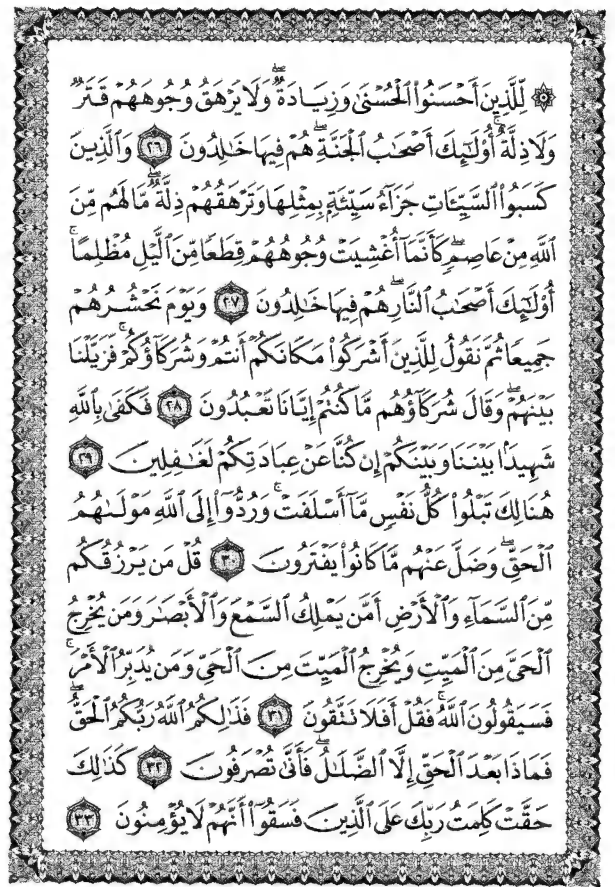 ۞ لِّلَّذِينَ أَحْسَنُوا۟ ٱلْحُسْنَىٰ وَزِيَادَةٌ ۖ وَلَا يَرْهَقُ وُجُوهَهُمْ قَتَرٌ
وَلَا ذِلَّةٌ ۚ أُو۟لَـٰٓئِكَ أَصْحَـٰبُ ٱلْجَنَّةِ ۖ هُمْ فِيهَا خَـٰلِدُونَ ٢٦ وَٱلَّذِينَ
كَسَبُوا۟ ٱلسَّيِّـَٔاتِ جَزَآءُ سَيِّئَةٍۭ بِمِثْلِهَا وَتَرْهَقُهُمْ ذِلَّةٌ ۖ مَّا لَهُم مِّنَ
ٱللَّهِ مِنْ عَاصِمٍ ۖ كَأَنَّمَآ أُغْشِيَتْ وُجُوهُهُمْ قِطَعًا مِّنَ ٱلَّيْلِ مُظْلِمًا ۚ
أُو۟لَـٰٓئِكَ أَصْحَـٰبُ ٱلنَّارِ ۖ هُمْ فِيهَا خَـٰلِدُونَ ٢٧ وَيَوْمَ نَحْشُرُهُمْ
جَمِيعًا ثُمَّ نَقُولُ لِلَّذِينَ أَشْرَكُوا۟ مَكَانَكُمْ أَنتُمْ وَشُرَكَآؤُكُمْ ۚ فَزَيَّلْنَا
بَيْنَهُمْ ۖ وَقَالَ شُرَكَآؤُهُم مَّا كُنتُمْ إِيَّانَا تَعْبُدُونَ ٢٨ فَكَفَىٰ بِٱللَّهِ
شَهِيدًۢا بَيْنَنَا وَبَيْنَكُمْ إِن كُنَّا عَنْ عِبَادَتِكُمْ لَغَـٰفِلِينَ ٢٩
هُنَالِكَ تَبْلُوا۟ كُلُّ نَفْسٍ مَّآ أَسْلَفَتْ ۚ وَرُدُّوٓا۟ إِلَى ٱللَّهِ مَوْلَىٰهُمُ
ٱلْحَقِّ ۖ وَضَلَّ عَنْهُم مَّا كَانُوا۟ يَفْتَرُونَ ٣٠ قُلْ مَن يَرْزُقُكُم
مِّنَ ٱلسَّمَآءِ وَٱلْأَرْضِ أَمَّن يَمْلِكُ ٱلسَّمْعَ وَٱلْأَبْصَـٰرَ وَمَن يُخْرِجُ
ٱلْحَىَّ مِنَ ٱلْمَيِّتِ وَيُخْرِجُ ٱلْمَيِّتَ مِنَ ٱلْحَىِّ وَمَن يُدَبِّرُ ٱلْأَمْرَ ۚ
فَسَيَقُولُونَ ٱللَّهُ ۚ فَقُلْ أَفَلَا تَتَّقُونَ ٣١ فَذَٰلِكُمُ ٱللَّهُ رَبُّكُمُ ٱلْحَقُّ ۖ
فَمَاذَا بَعْدَ ٱلْحَقِّ إِلَّا ٱلضَّلَـٰلُ ۖ فَأَنَّىٰ تُصْرَفُونَ ٣٢ كَذَٰلِكَ
حَقَّتْ كَلِمَتُ رَبِّكَ عَلَى ٱلَّذِينَ فَسَقُوٓا۟ أَنَّهُمْ لَا يُؤْمِنُونَ ٣٣